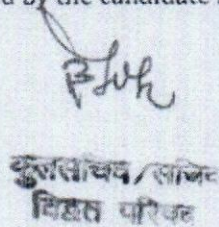 by the candidate
कुलसचिव/सचिव
विद्वत परिषद